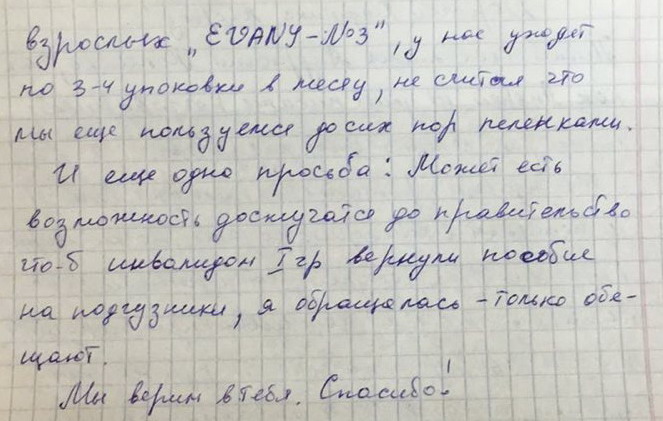 взрослых „EVANY-№3", у нас уходят
по 3-4 упоковки в месяц, не считая что
мы еще пользуемся досих пор пеленками.
И еще одно просьба: Может есть
возможность доскучатся до правительство
что-б инвалидом I гр вернули пособие
на подгузники, я обращалась - только обе-
щают.
Мы верим в тебя. Спасибо!